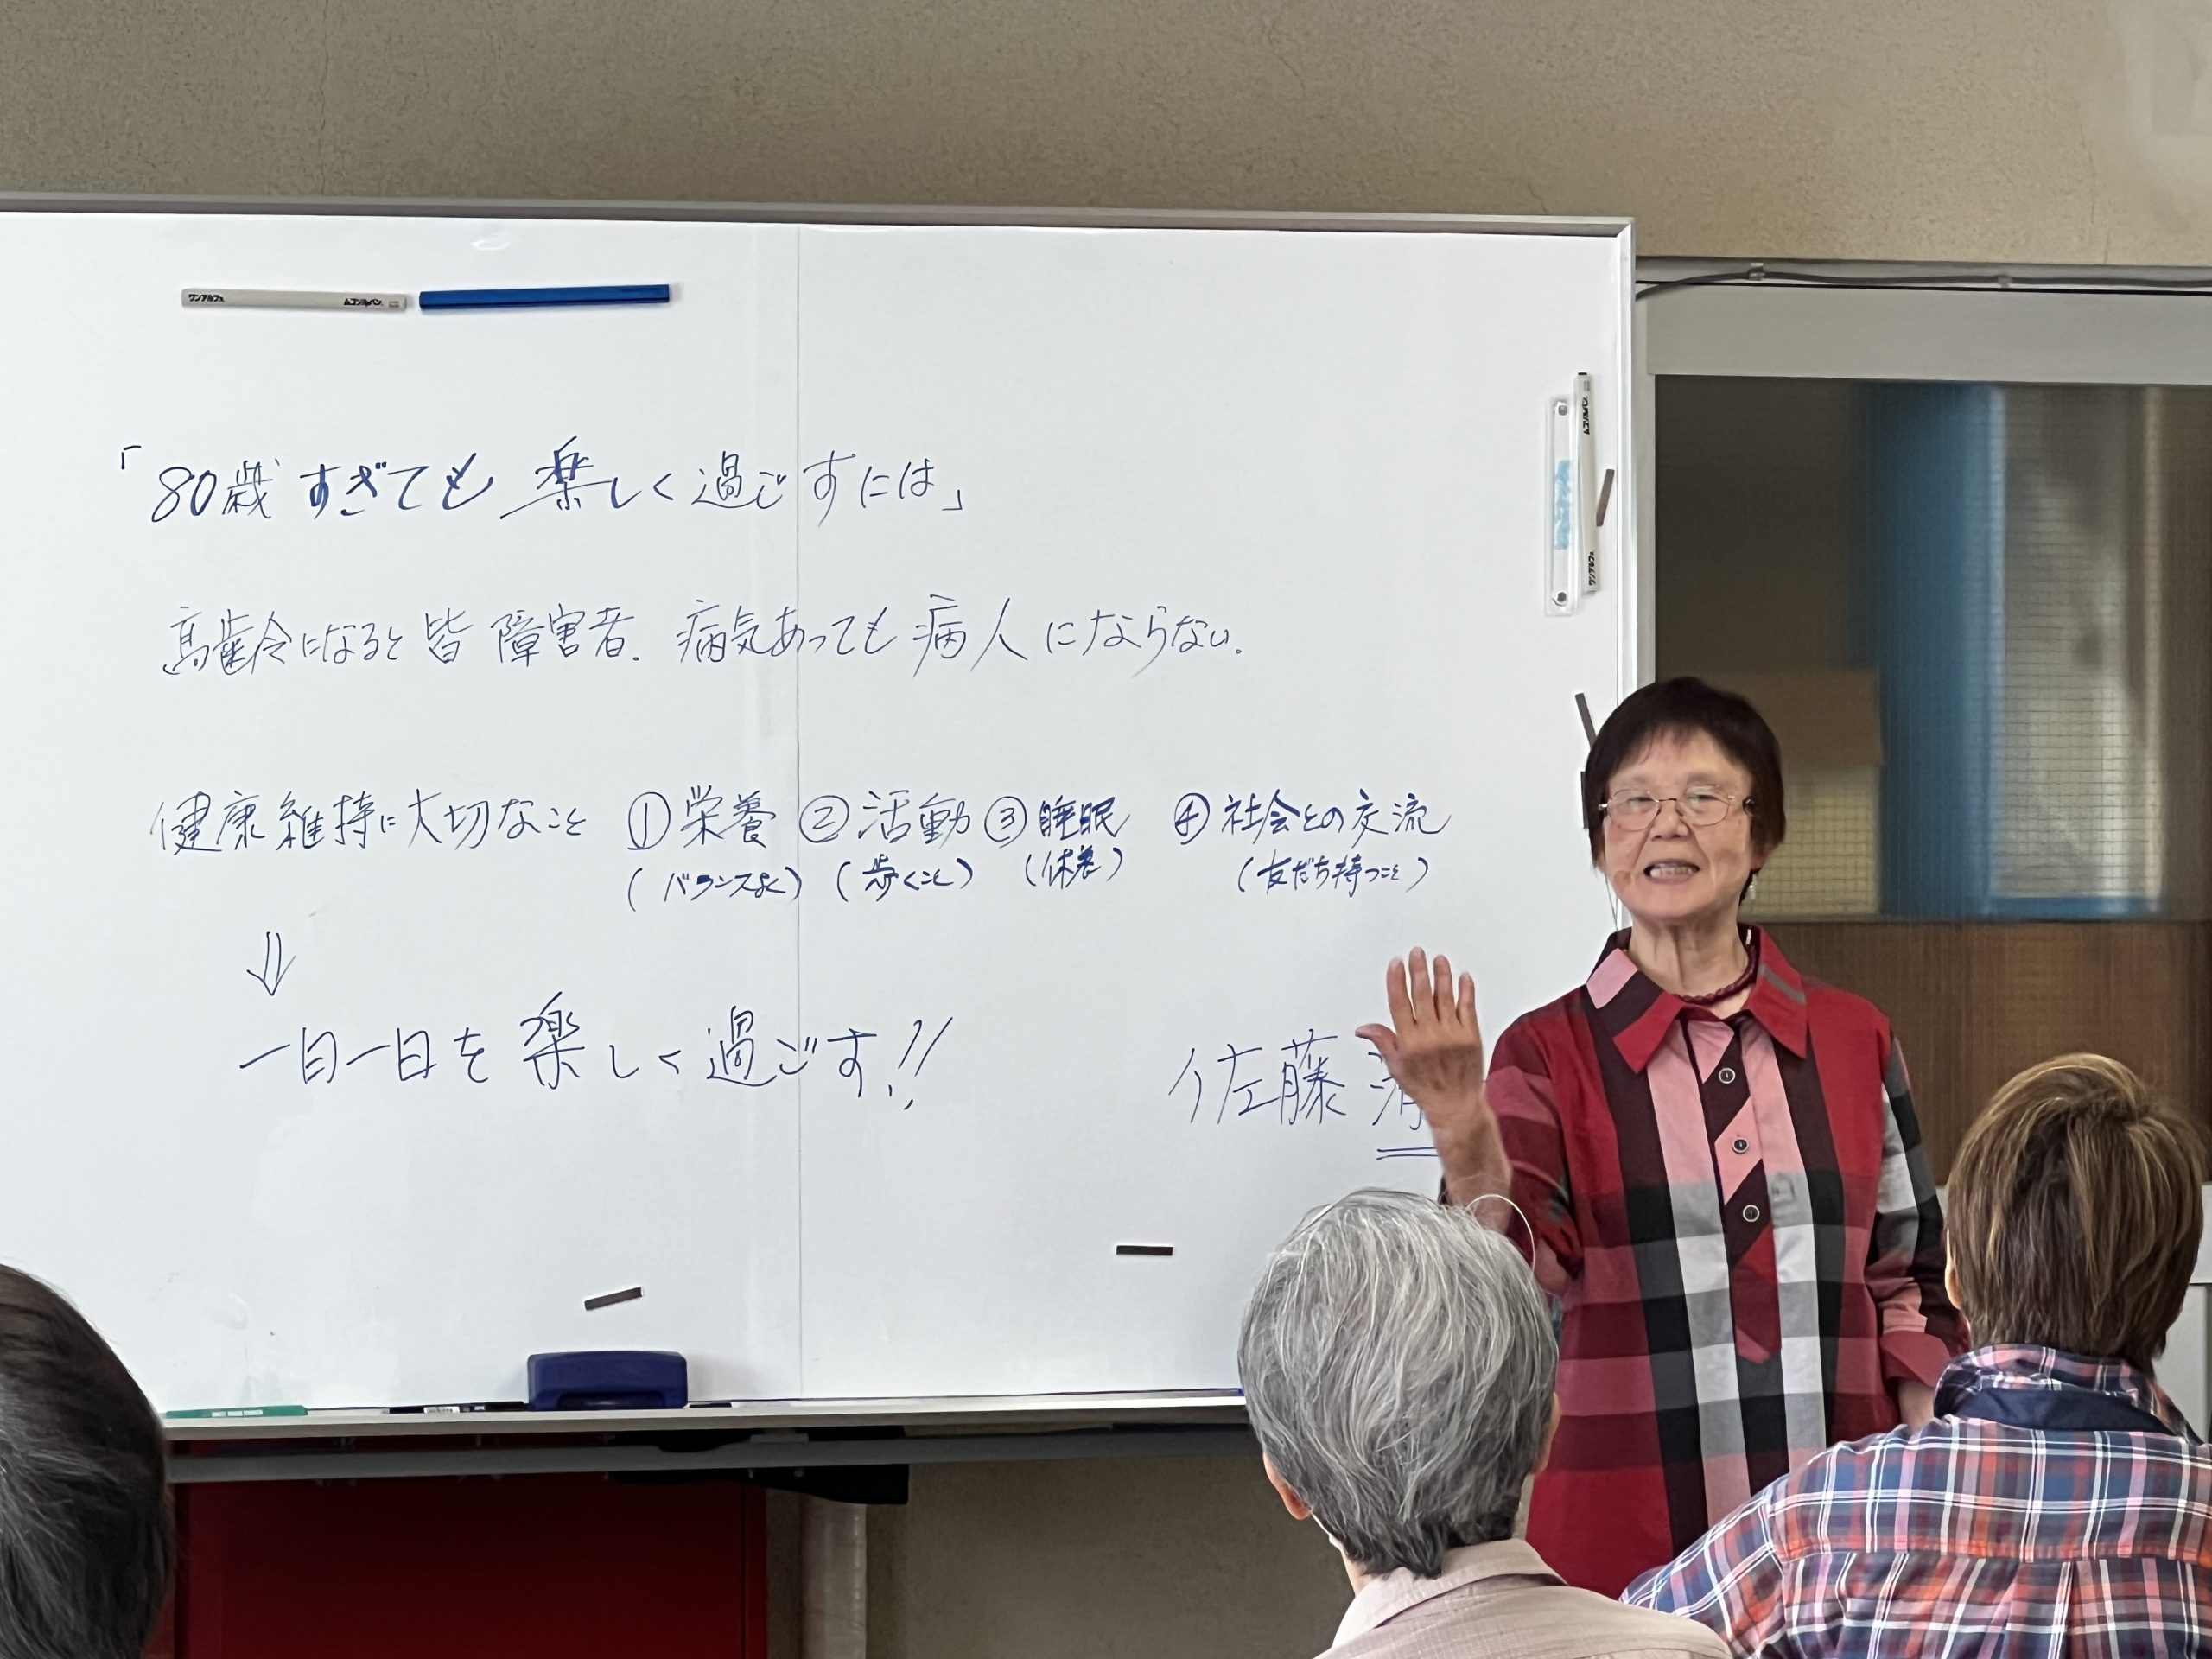 ワンアルファ ムコンカバン
「80歳すぎても楽しく過ごすには」
高歯令になると皆障害者. 病気あっても病人にならない.
健康維持に大切なこと ①栄養 ②活動 ③睡眠 ④社会との交流
(バランスよく) (歩くこと) (休養) (友だち持つこと)
⇓
一日一日を楽しく過ごす!!
佐藤